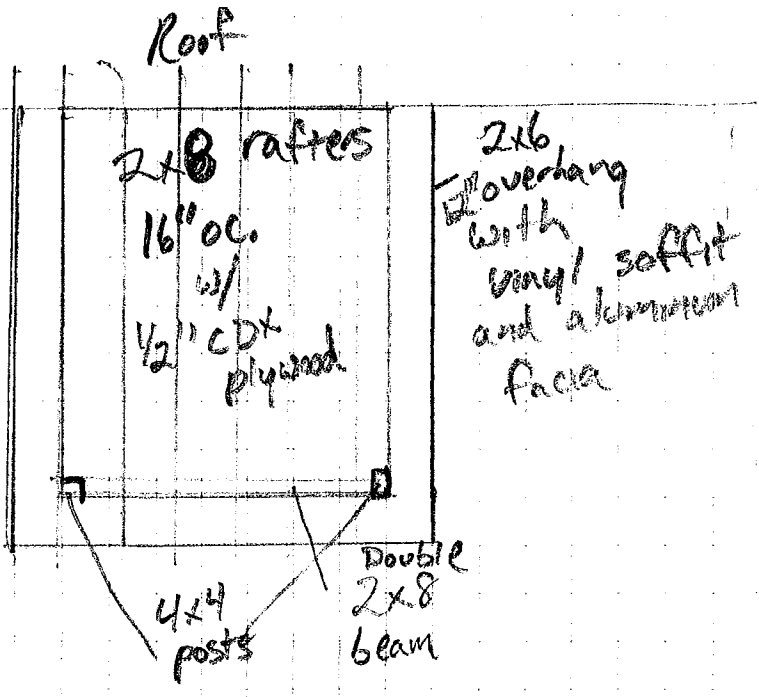 Roof
2x8 rafters
16" oc.
w/
1/2" CDX
plywood
2x6
12" overhang
with
vinyl soffit
and aluminum
facia
4x4
posts
Double
2x8
beam